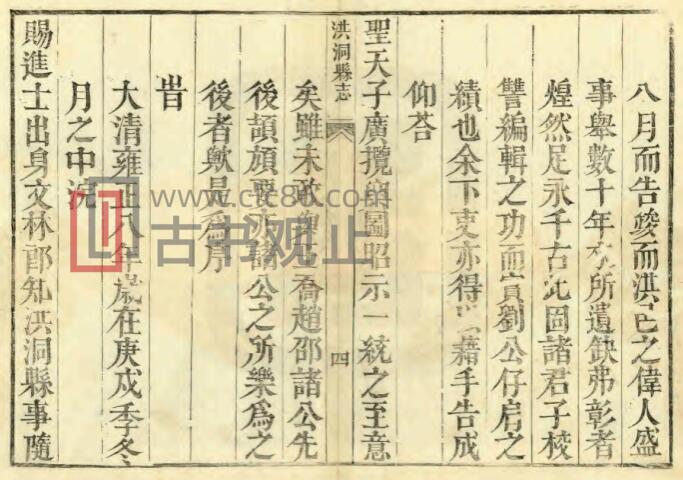 八月而告竣而洪邑之偉人盛
事舉數十年來所遺缺弗彰者
煌然足永千古此固諸君子校
讐編輯之功而實劉公仔肩之
績也余下吏亦得以藉手告成
仰荅
聖天子廣攬輿圖昭示一統之至意
洪洞縣志
四
矣雖未敢與喬趙邵諸公先
後頡頏要亦諸公之所樂為之
後者歟是為序
旹
大清雍正八年歲在庚戌季冬
月之中浣
賜進士出身文林郎知洪洞縣事隨
www.ctc80.com
古书观止